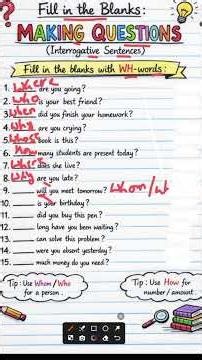 Fill in the Blanks:
MAKING QUESTIONS
(Interrogative Sentences)
Fill in the blanks with WH-words:
1. where are you going?
2. who is your best friend?
3. when did you finish your homework?
4. why are you crying?
5. whose book is this?
6. How many students are present today?
7. where does she live?
8. why are you late?
9. ______ will you meet tomorrow? whom/w
10. ______ is your birthday?
11. ______ did you buy this pen?
12. ______ long have you been waiting?
13. ______ can solve this problem?
14. ______ were you absent yesterday?
15. ______ much money do you need?
Tip: Use Whom / Who
for a person.
Tip: Use How for
number / amount.